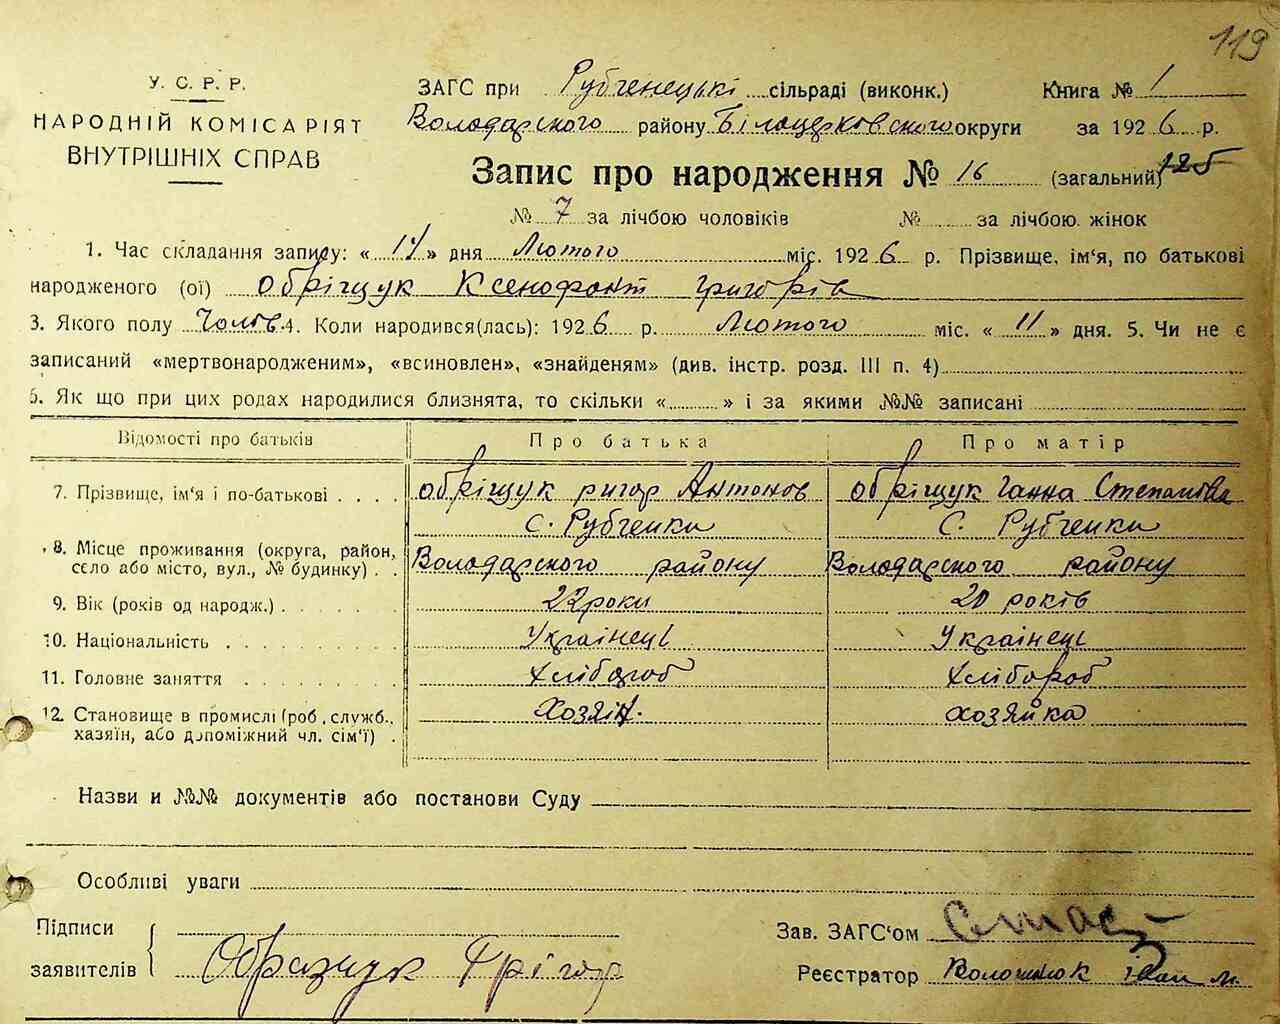 119
У. С. Р. Р.
НАРОДНІЙ КОМІСАРІЯТ
ВНУТРІШНІХ СПРАВ
ЗАГС при Рубченецькі сільраді (виконк.) Книга № 1
Володарского району Білоцерковского округи за 1926 р.
Запис про народження № 16 (загальний) 125
№ 7 за лічбою чоловіків № за лічбою жінок
1. Час складання запису: « 14 » дня Лютого міс. 1926 р. Прізвище, ім'я, по батькові
народженого (ої) Обріщук Ксенофонт Григорів
3. Якого полу Чолів. 4. Коли народився(лась): 1926 р. Лютого міс. « 11 » дня. 5. Чи не є
записаний «мертвонародженим», «всиновлен», «знайденям» (див. інстр. розд. III п. 4)
6. Як що при цих родах народилися близнята, то скільки « » і за якими №№ записані
Відомості про батьків Про батька Про матір
7. Прізвище, ім'я і по-батькові . . . . Обріщук ригор Антонов Обріщук Ганна Степанівна
с. Рубченки с. Рубченки
8. Місце проживання (округа, район, село або місто, вул., № будинку) . . Володарского району Володарского району
9. Вік (років од народж.) . . . . . . . 22 роки 20 років
10. Національність . . . . . . . . . . Українець Українець
11. Головне заняття . . . . . . . . . Хлібороб Хлібороб
12. Становище в промислі (роб., служб., хазяїн, або допоміжний чл. сім'ї) . Хозяїн. хозяйка
Назви и №№ документів або постанови Суду
Особливі уваги
Підписи
заявителів Обращук Грігор
Зав. ЗАГС'ом
Реєстратор Волошнюк Іван М.